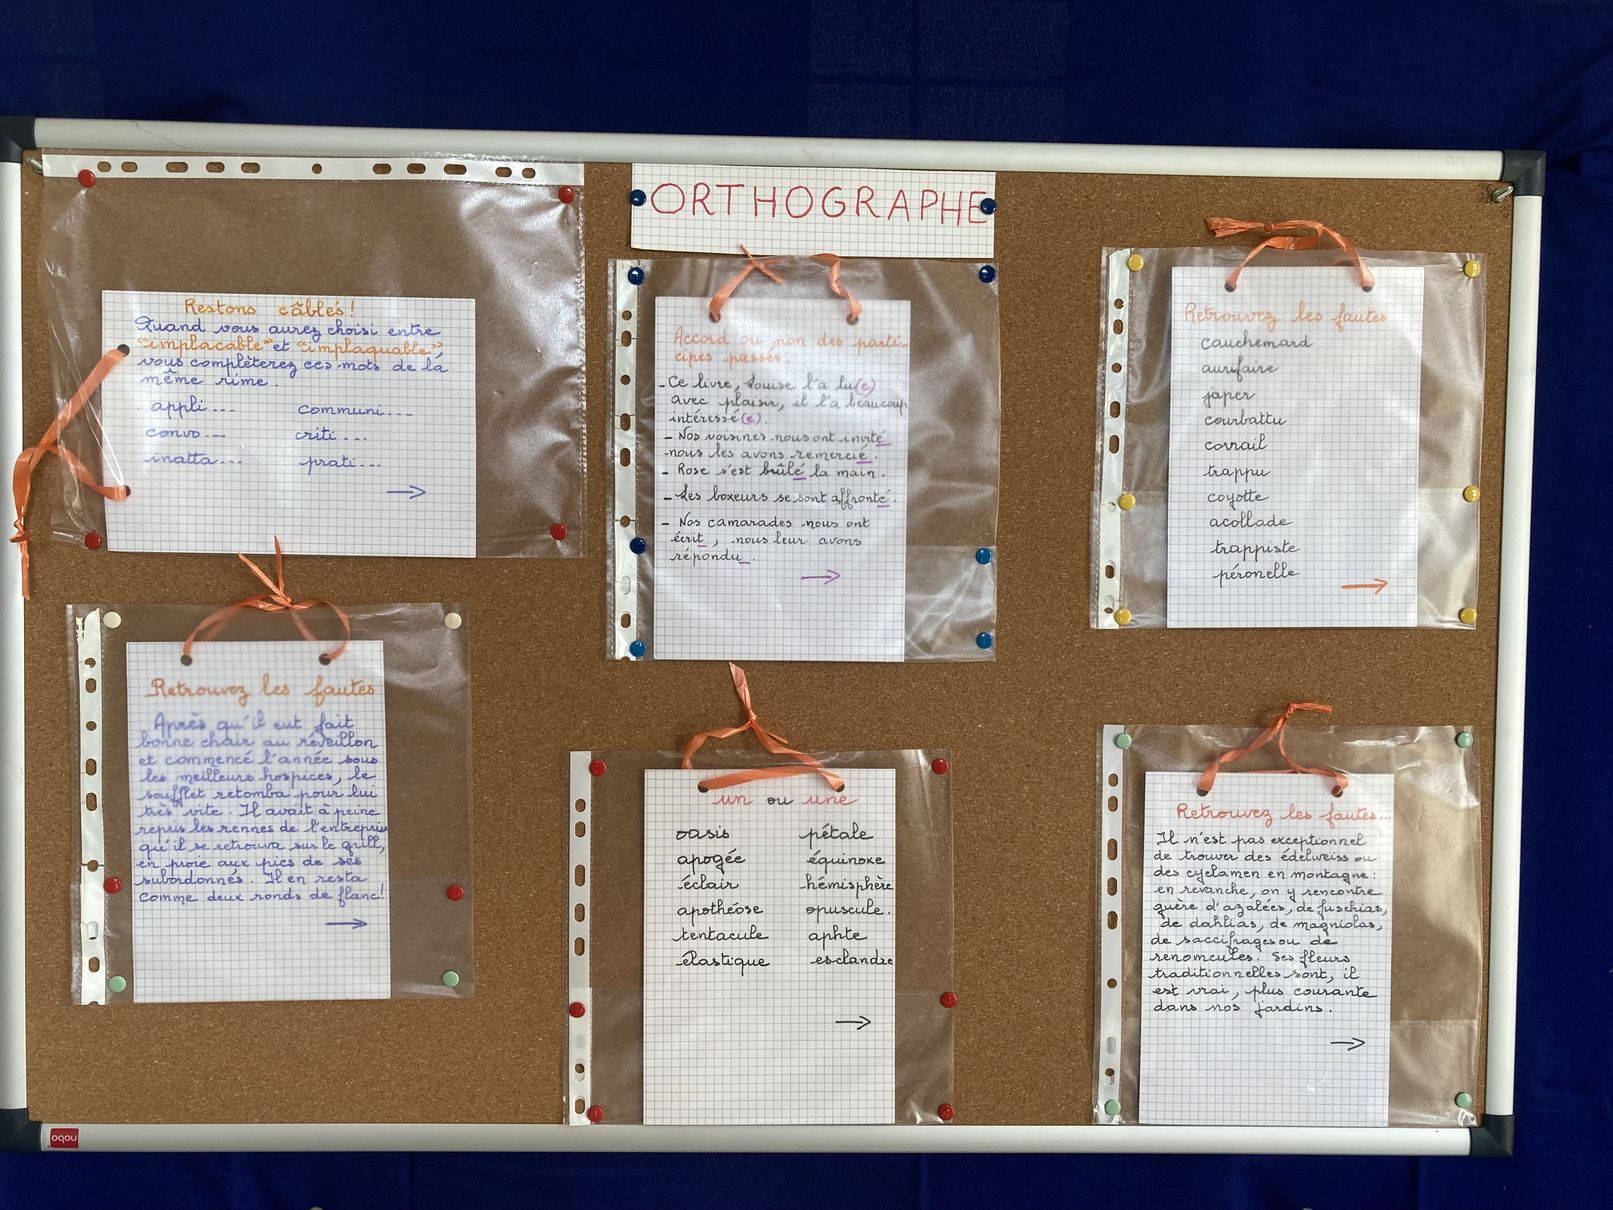 ORTHOGRAPHE
Restons câblés!
Quand vous aurez choisi entre
"implacable" et "implaquable"
vous complèterez ces mots de la
même rime.
appli... communi...
convo... criti...
inatta... prati...
→
Accord ou non des parti-
cipes passés.
- Ce livre, Louise l'a lu(e)
avec plaisir, il l'a beaucoup
intéressé(e).
- Nos voisines nous ont invité_
nous les avons remercié_.
- Rose s'est brûlé_ la main.
- Les boxeurs se sont affronté_.
- Nos camarades nous ont
écrit_, nous leur avons
répondu_.
→
Retrouvez les fautes
cauchemard
aurifaire
japer
courbattu
corrail
trappu
coyotte
acollade
trappiste
péronelle
→
Retrouvez les fautes
Après qu'il eut fait
bonne chair au réveillon
et commencé l'année sous
les meilleurs hospices, le
soufflet retomba pour lui
très vite. Il avait à peine
repris les rennes de l'entreprise
qu'il se retrouva sur le grill,
en proie aux pics de ses
subordonnés. Il en resta
comme deux ronds de flanc!
→
un ou une
oasis pétale
apogée équinoxe
éclair hémisphère
apothéose opuscule.
tentacule aphte
élastique esclandre
→
Retrouvez les fautes...
Il n'est pas exceptionnel
de trouver des édelweiss ou
des cyclamen en montagne:
en revanche, on y rencontre
guère d'azalées, de fuschias,
de dahlias, de magniolas,
de saccifrages ou de
renomcules. Ses fleurs
traditionnelles sont, il
est vrai, plus courante
dans nos jardins.
→
nobo